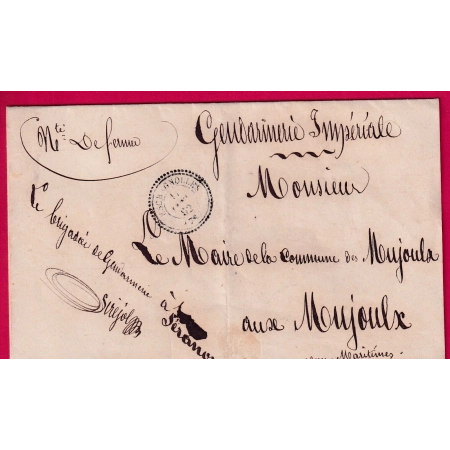 Nté De ferme
Gendarmerie Impériale
Monsieur
Le Maire de la Commune des Mujoulx
aux Mujoulx
Maritimes.
Le brigadier de Gendarmerie à
Séranon